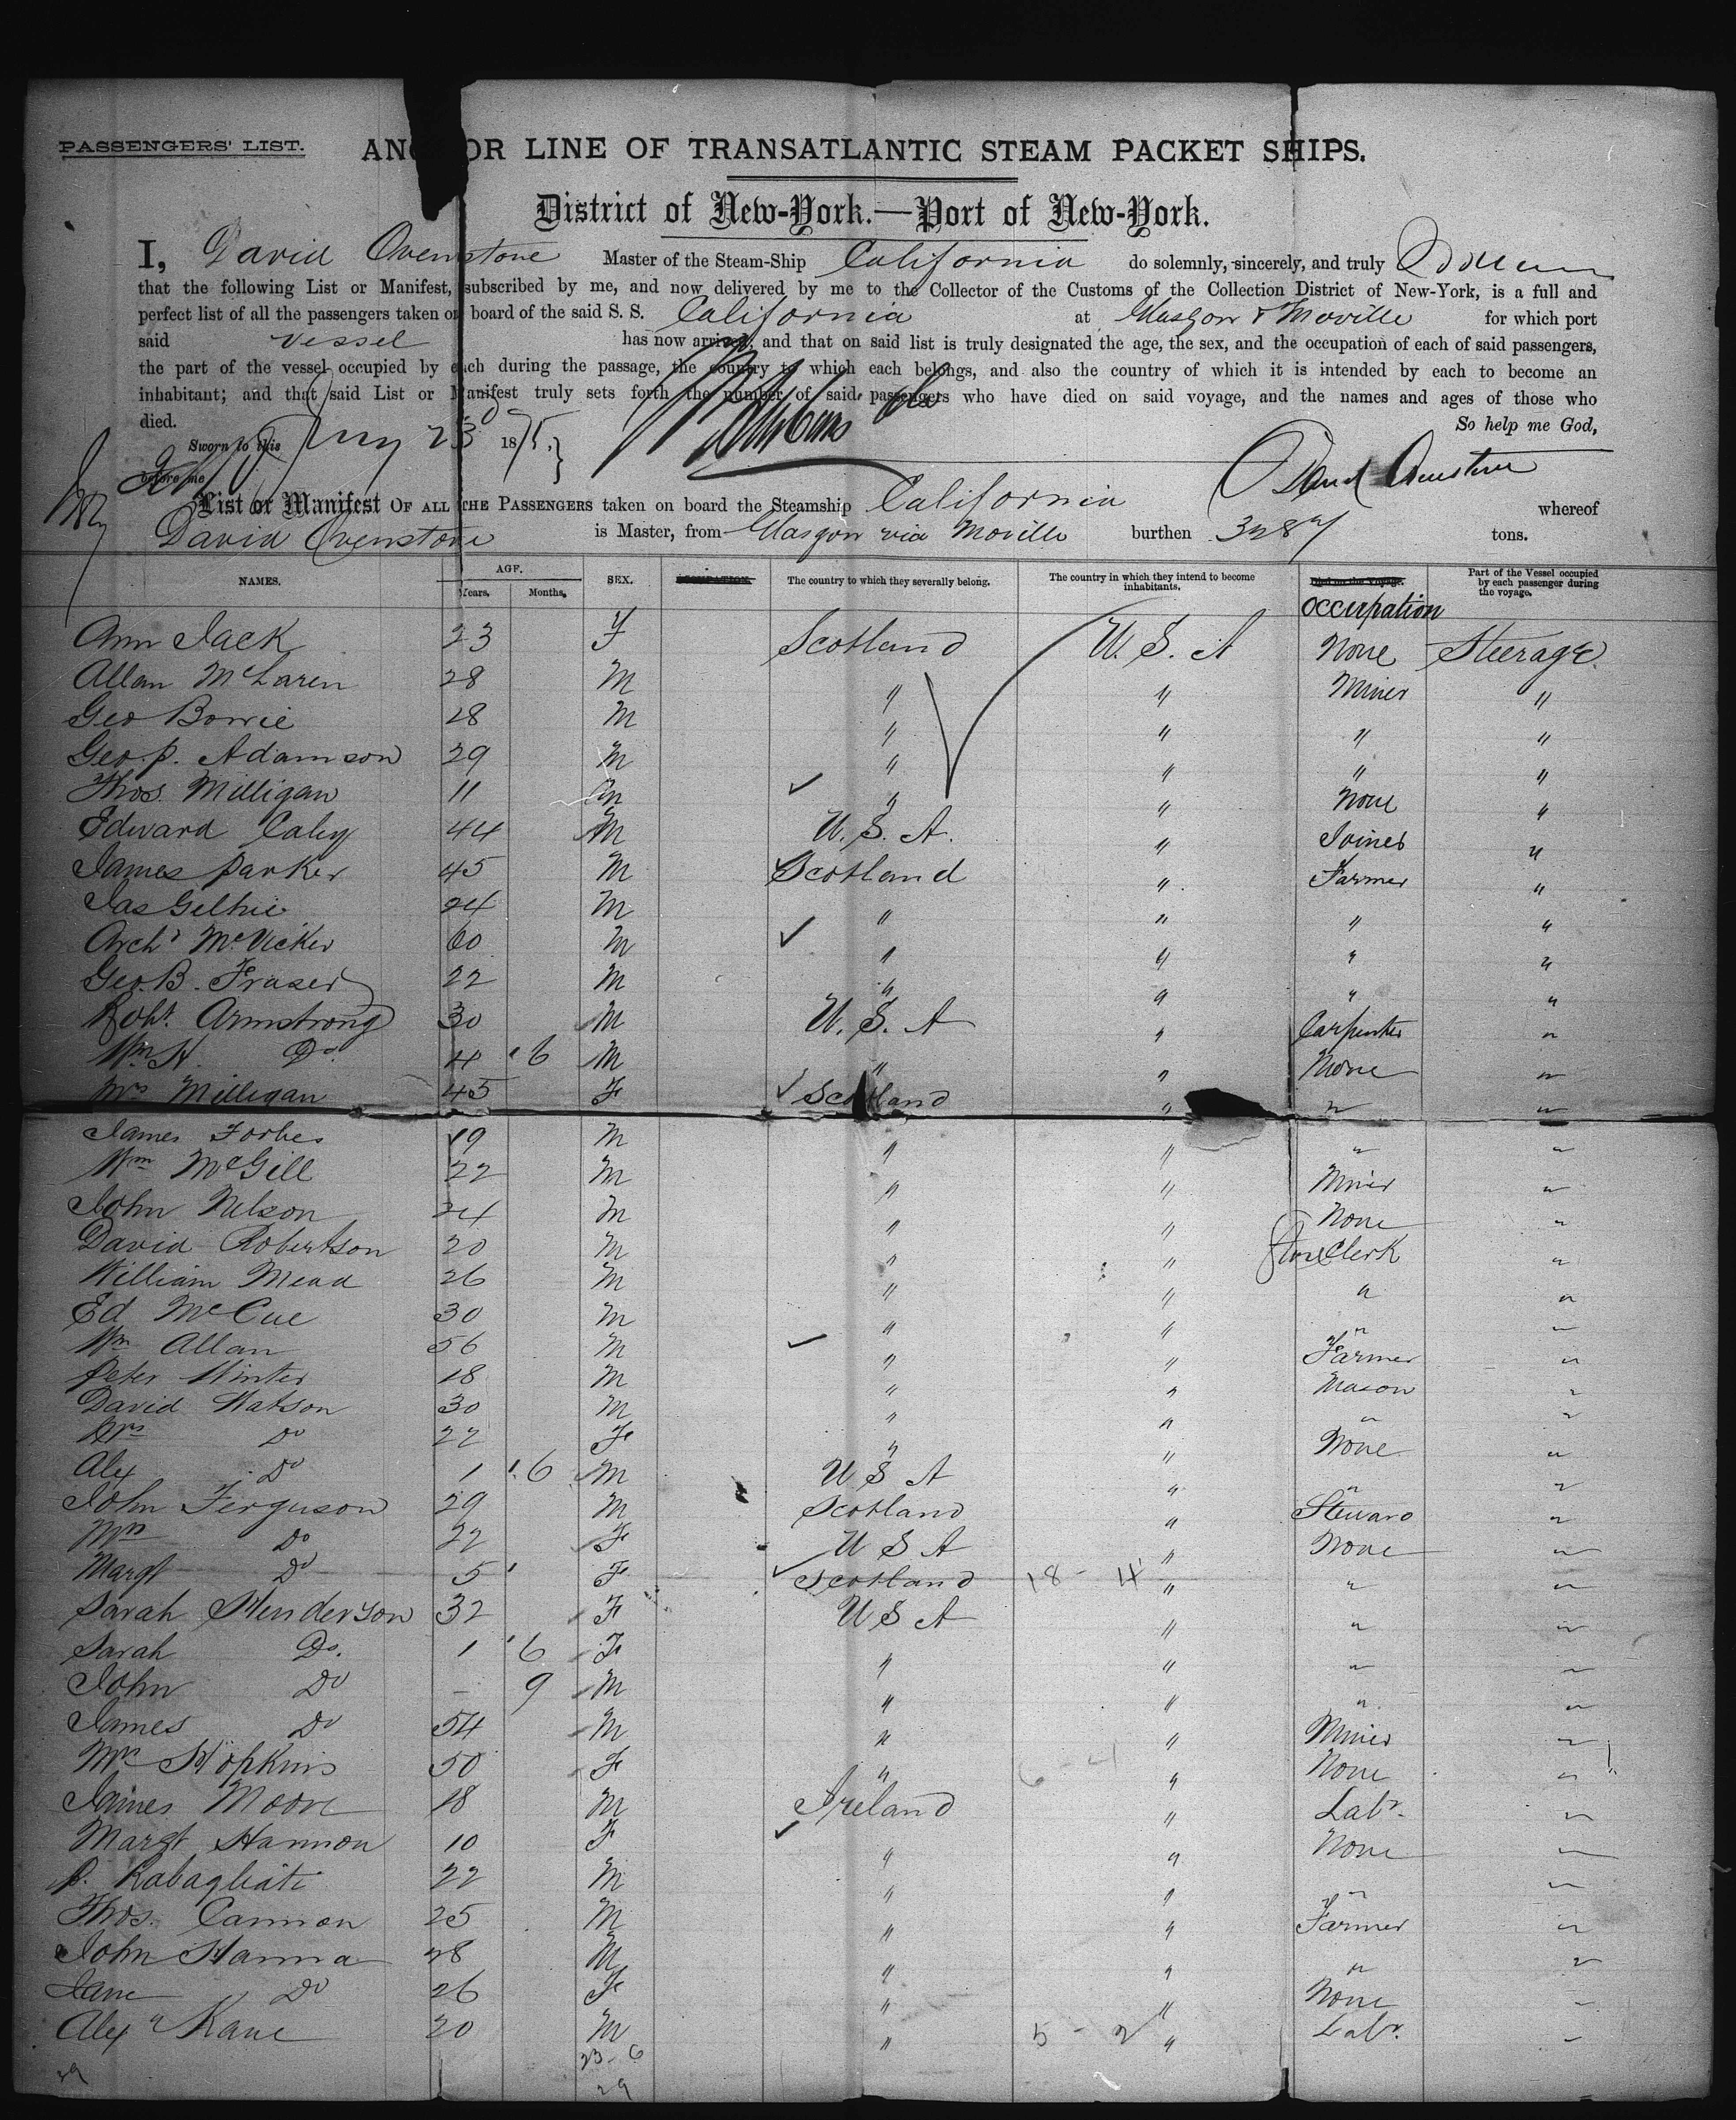 PASSENGERS' LIST.
ANCHOR LINE OF TRANSATLANTIC STEAM PACKET SHIPS.
District of New-York.—Port of New-York.
I, David Ovenstone Master of the Steam-Ship California do solemnly, sincerely, and truly
that the following List or Manifest, subscribed by me, and now delivered by me to the Collector of the Customs of the Collection District of New-York, is a full and
perfect list of all the passengers taken on board of the said S. S. California at Glasgow & Moville for which port
said vessel has now arrived, and that on said list is truly designated the age, the sex, and the occupation of each of said passengers,
the part of the vessel occupied by each during the passage, the country to which each belongs, and also the country of which it is intended by each to become an
inhabitant; and that said List or Manifest truly sets forth the number of said passengers who have died on said voyage, and the names and ages of those who
died.
So help me God,
Sworn to this 23 1875
before me
David Ovenstone
List or Manifest OF ALL THE PASSENGERS taken on board the Steamship California whereof
David Ovenstone is Master, from Glasgow via Moville burthen 3287 tons.
NAMES. AGE. Years. Months. SEX. OCCUPATION. The country to which they severally belong. The country in which they intend to become inhabitants. Died on the Voyage. Occupation Part of the Vessel occupied by each passenger during the voyage.
Ann Jack 23 F Scotland U. S. A None Steerage
Allan McLaren 28 M " " Miner "
Geo Bowie 28 M " " " "
Geo. P. Adamson 29 M " " " "
Thos. Milligan 11 M " " None "
Edward Caley 44 M U. S. A. " Joiner "
James Parker 45 M Scotland " Farmer "
Jas Gelhie 24 M " " " "
Archd McVicker 60 M " " " "
Geo B. Fraser 22 M " " " "
Robt. Armstrong 30 M U. S. A " Carpenter "
Wm H. Do. 4 6 M " " None "
Mrs Milligan 45 F Scotland " " "
James Forbes 19 M " " " "
Wm McGill 22 M " " Miner "
John Nelson 24 M " " None "
David Robertson 20 M " " Store Clerk "
William Mead 26 M " " " "
Ed McCue 30 M " " " "
Wm Allan 56 M " " Farmer "
Peter Winter 18 M " " Mason "
David Watson 30 M " " " "
Mrs Do 22 F " " None "
Alex Do 1 6 M U S A " " "
John Ferguson 29 M Scotland " Steward "
Mrs Do 22 F U S A " None "
Margt Do 5 F Scotland 18 - 4 " " "
Sarah Henderson 32 F U S A " " "
Sarah Do. 1 6 F " " " "
John Do - 9 M " " " "
James Do 54 M " " Miner "
Mrs Hopkins 50 F " 6 - 4 " None "
James Moore 18 M Ireland " Labr. "
Margt Hannon 10 F " " None "
P. Rabagliati 22 M " " " "
Thos. Cannon 25 M " " Farmer "
John Hanna 28 M " " " "
Jane Do 26 F " " None "
Alex Kane 20 M " 5 - 2 " Labr. "
23 - 6
29